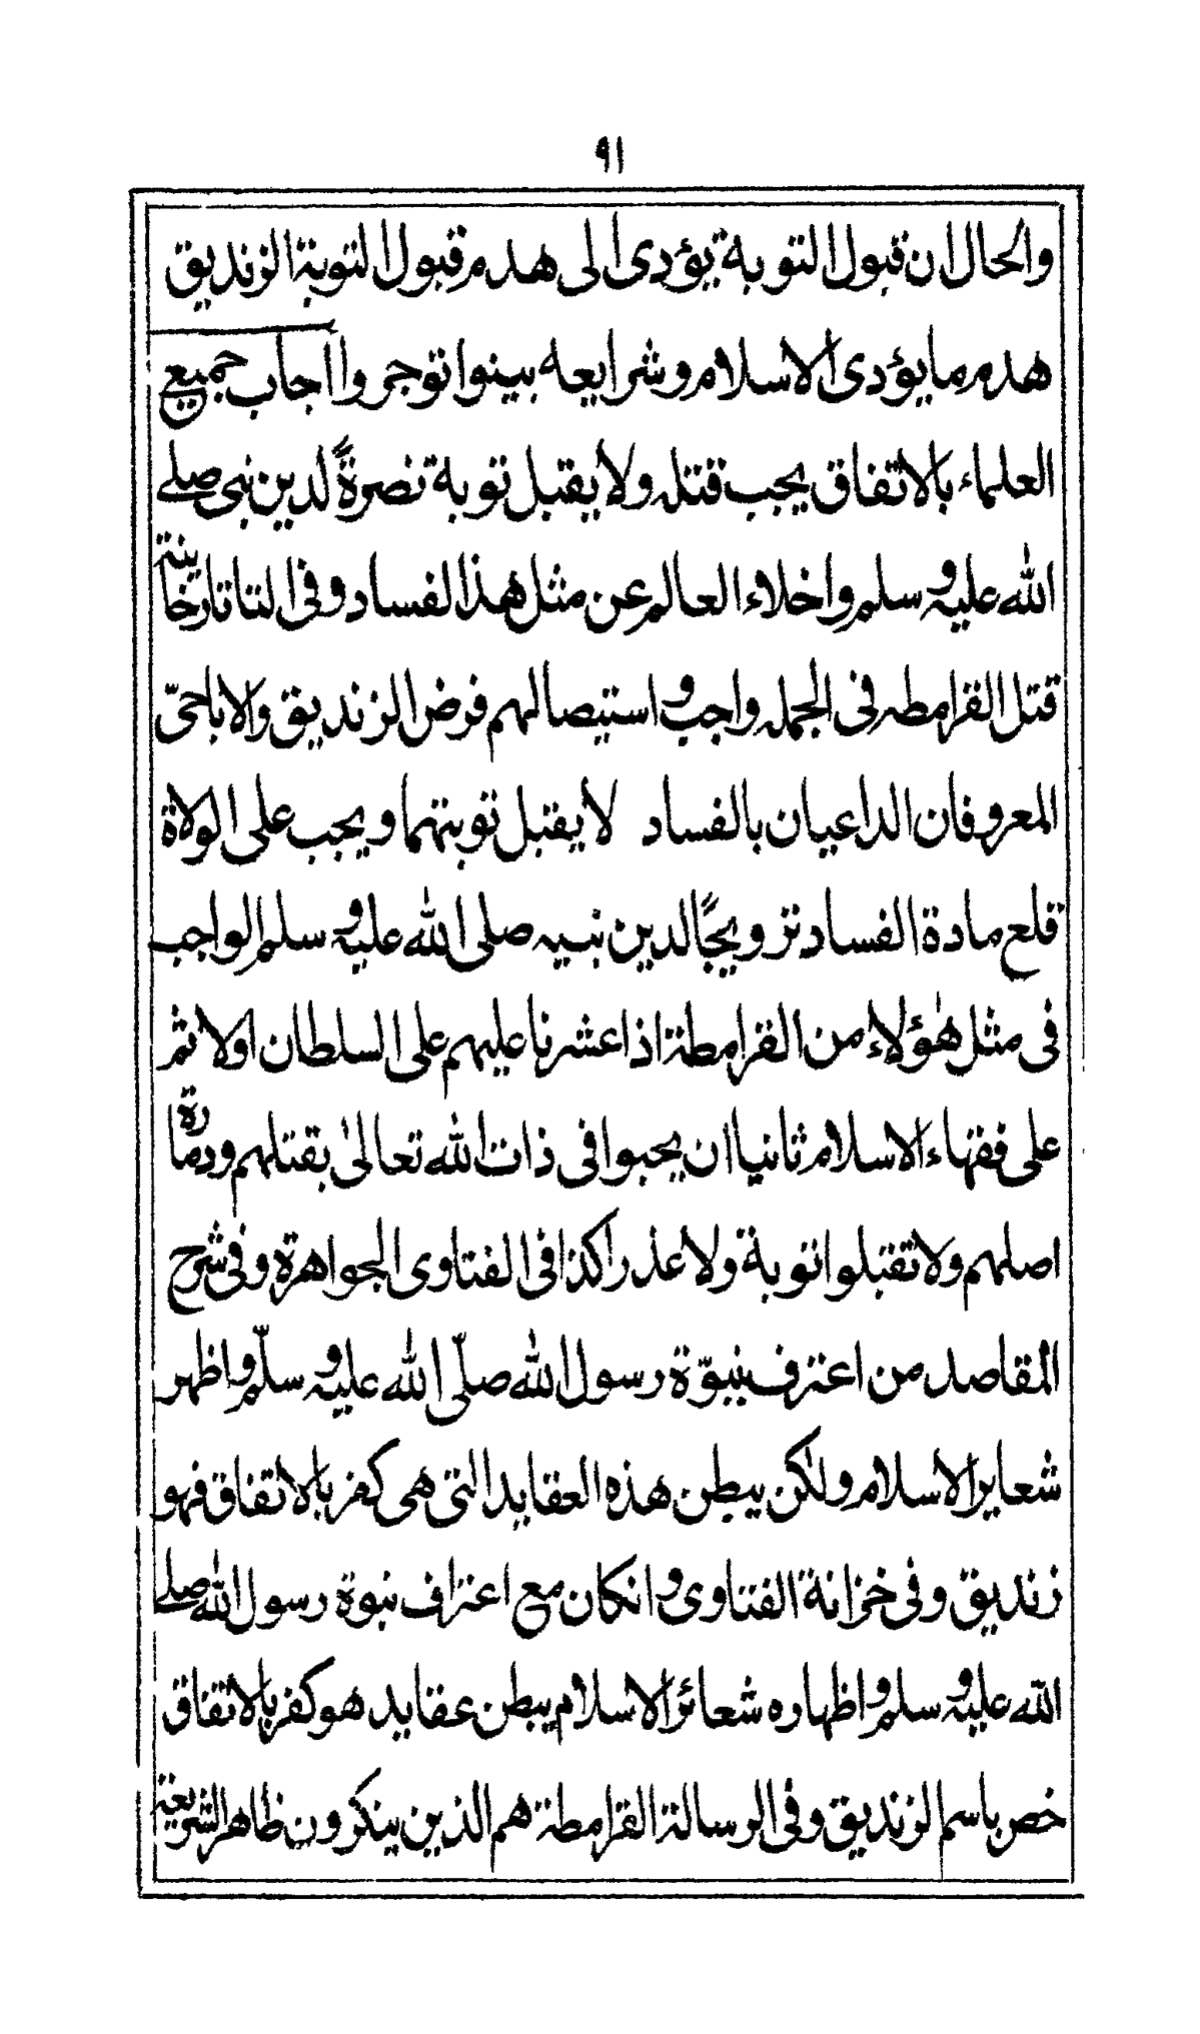 ٩١
والحال ان قبول التوبة يؤدى الى هدم قبول التوبة الزنديق
هدم ما يؤدى الاسلام و شرايعه بينوا توجروا اجاب جميع
العلماء بالاتفاق يجب قتله ولا يقبل توبة نصرةً لدين نبى صلے
الله عليه و سلم واخلاء العالم عن مثل هذا الفساد وفى التاتارخانية
قتل القرامطه فى الجمله واجب و استيصالهم فرض الزنديق والاباحىّ
المعروفان الداعيان بالفساد لا يقبل توبتهما و يجب على الولاة
قلع مادة الفساد ترويجًا لدين نبيه صلى الله عليه و سلم الواجب
فى مثل هٰؤلاء من القرامطة اذا عشرنا عليهم على السلطان اولا ثم
على فقهاء الاسلام ثانيا ان يحبوا فى ذات الله تعالىٰ بقتلهم ودمارة
اصلهم ولا تقبلوا توبة ولا عذرا كذا فى الفتاوى الجواهرة وفى شرح
المقاصد من اعترف بنبوّة رسول الله صلّى الله عليه و سلّم و اظهر
شعاير الاسلام ولٰكن يبطن هذه العقايد التى هى كفر بالاتفاق فهو
زنديق وفى خزانة الفتاوى و انكان مع اعتراف نبوة رسول الله صلے
الله عليه و سلم و اظهاره شعائر الاسلام يبطن عقايد هو كفر بالاتفاق
خص باسم الزنديق وفى الرسالة القرامطة هم الذين ينكرون ظاهر الشريعة